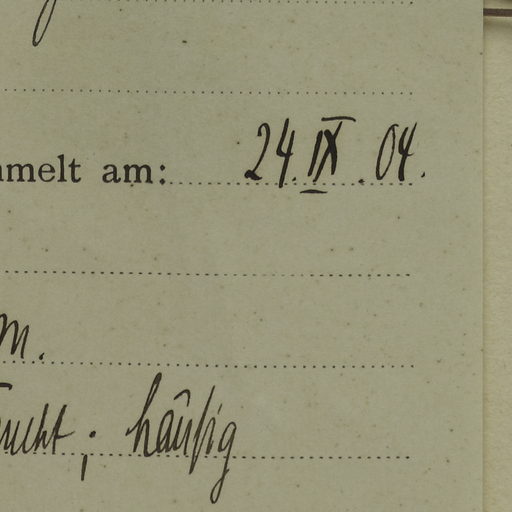 mmelt am: 24. IX. 04.
m.
häufig